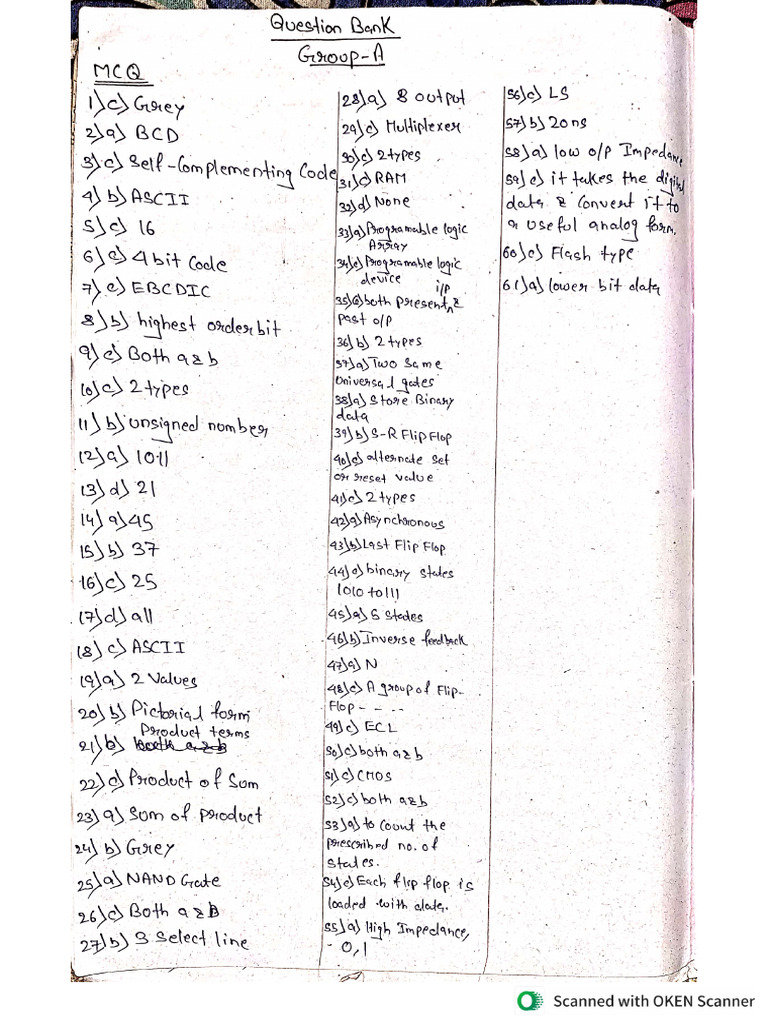 Question Bank
Group-A
MCQ
1) c) Grey
2) a) BCD
3) c) Self-Complementing Code
4) b) ASCII
5) c) 16
6) c) 4 bit Code
7) c) EBCDIC
8) b) highest order bit
9) c) Both a & b
10) c) 2 types
11) b) unsigned number
12) a) 1011
13) d) 21
14) a) 45
15) b) 37
16) c) 25
17) d) all
18) c) ASCII
19) a) 2 Values
20) b) Pictorial form
Product terms
21) b)
22) c) Product of Sum
23) a) Sum of product
24) b) Grey
25) a) NAND Gate
26) c) Both a & b
27) b) 3 Select line
28) a) 8 output
29) c) Multiplexer
30) c) 2 types
31) c) RAM
32) d) None
33) a) Programable logic
Array
34) c) Programable logic
device
i/p
35) a) both present & 
past o/p
36) b) 2 types
37) a) Two Same
Universal gates
38) a) Store Binary
data
39) b) S-R Flip Flop
40) c) alternate set
or reset value
41) c) 2 types
42) a) Asynchronous
43) b) Last Flip Flop
44) a) binary states
1010 to 1111
45) a) 5 States
46) b) Inverse feedback
47) a) N
48) c) A group of Flip-
Flop - - - -
49) c) ECL
50) c) both a & b
51) c) CMOS
52) c) both a & b
53) a) to count the
prescribed no. of
states.
54) c) Each flip flop is
loaded with data.
55) a) High Impedance,
0, 1
56) c) LS
57) b) 20ns
58) a) low o/p Impedance
59) c) it takes the digital
data & Convert it to
a useful analog form.
60) c) Flash type
61) a) lower bit data
Scanned with OKEN Scanner